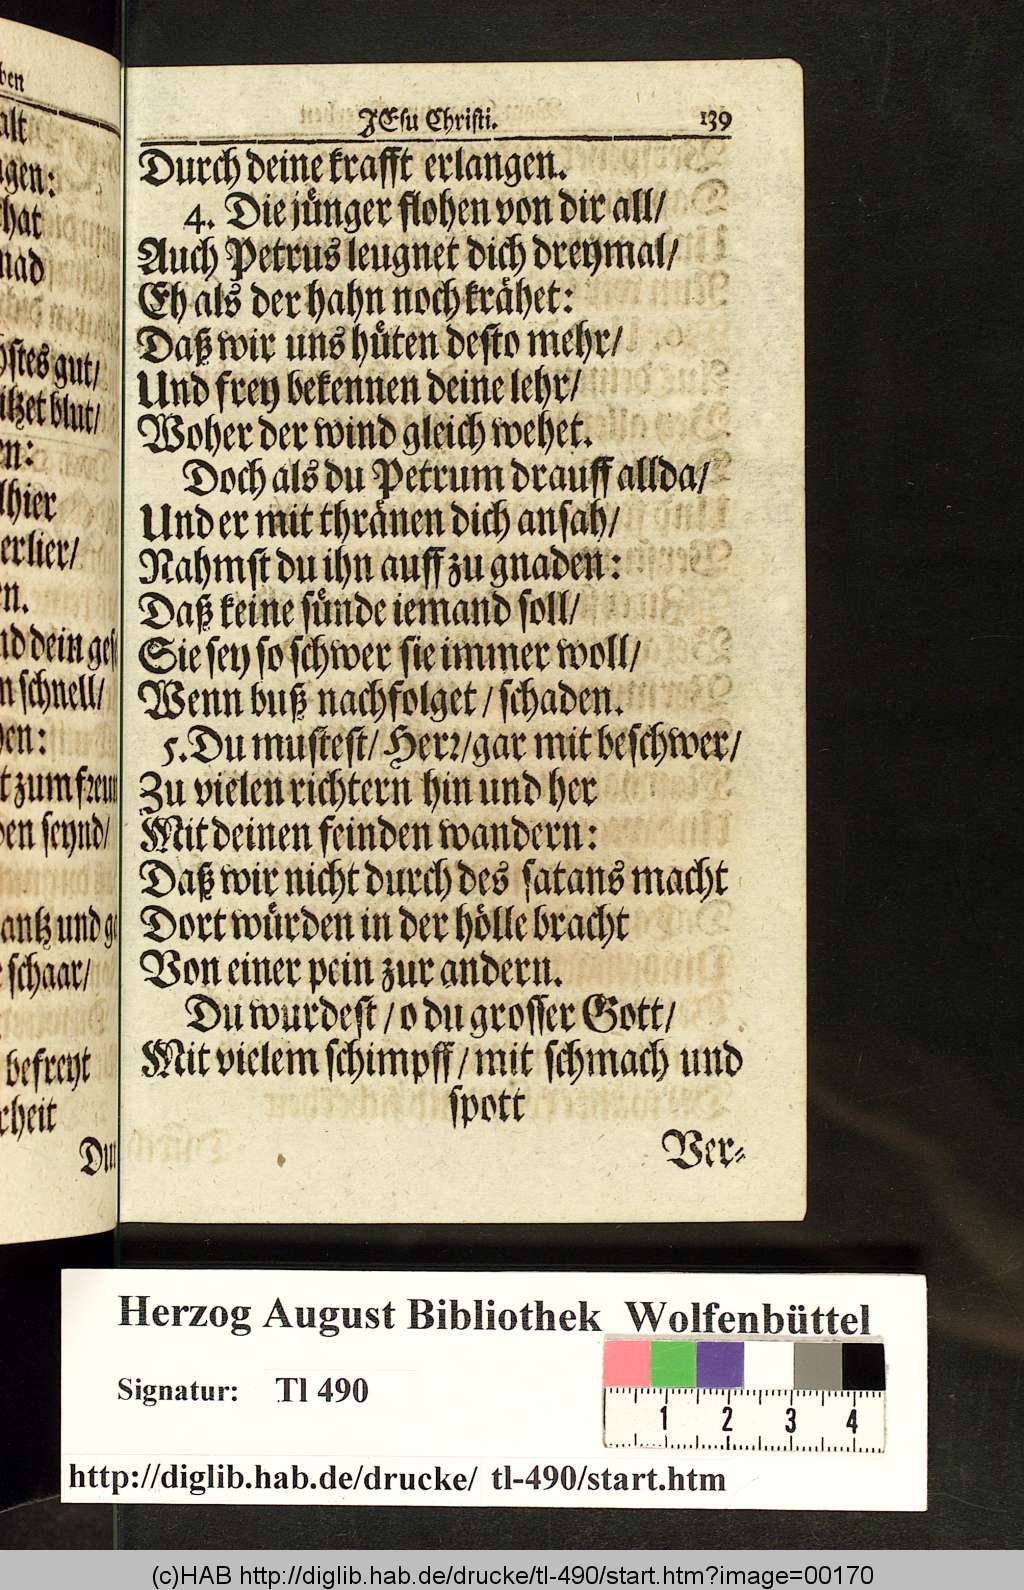 ben
alt
gen:
hat
nad
hstes gut/
ilzet blut/
en:
lhier
erlier/
en.
nd dein ges
n schnell/
hen:
t zum freun
den seynd/
antz und ge
e schaar/
befreyt
rheit
Dur
JEsu Christi. 139
Durch deine krafft erlangen.
4. Die jünger flohen von dir all/
Auch Petrus leugnet dich dreymal/
Eh als der hahn noch krähet:
Daß wir uns hüten desto mehr/
Und frey bekennen deine lehr/
Woher der wind gleich wehet.
Doch als du Petrum drauff allda/
Und er mit thränen dich ansah/
Nahmst du ihn auff zu gnaden:
Daß keine sünde iemand soll/
Sie sey so schwer sie immer woll/
Wenn buß nachfolget/ schaden.
5. Du mustest/ Herr/ gar mit beschwer/
Zu vielen richtern hin und her
Mit deinen feinden wandern:
Daß wir nicht durch des satans macht
Dort würden in der hölle bracht
Von einer pein zur andern.
Du wurdest/ o du grosser Gott/
Mit vielem schimpff/ mit schmach und
spott
Ver-
Herzog August Bibliothek Wolfenbüttel
Signatur: Tl 490
1 2 3 4
http://diglib.hab.de/drucke/ tl-490/start.htm
(c)HAB http://diglib.hab.de/drucke/tl-490/start.htm?image=00170